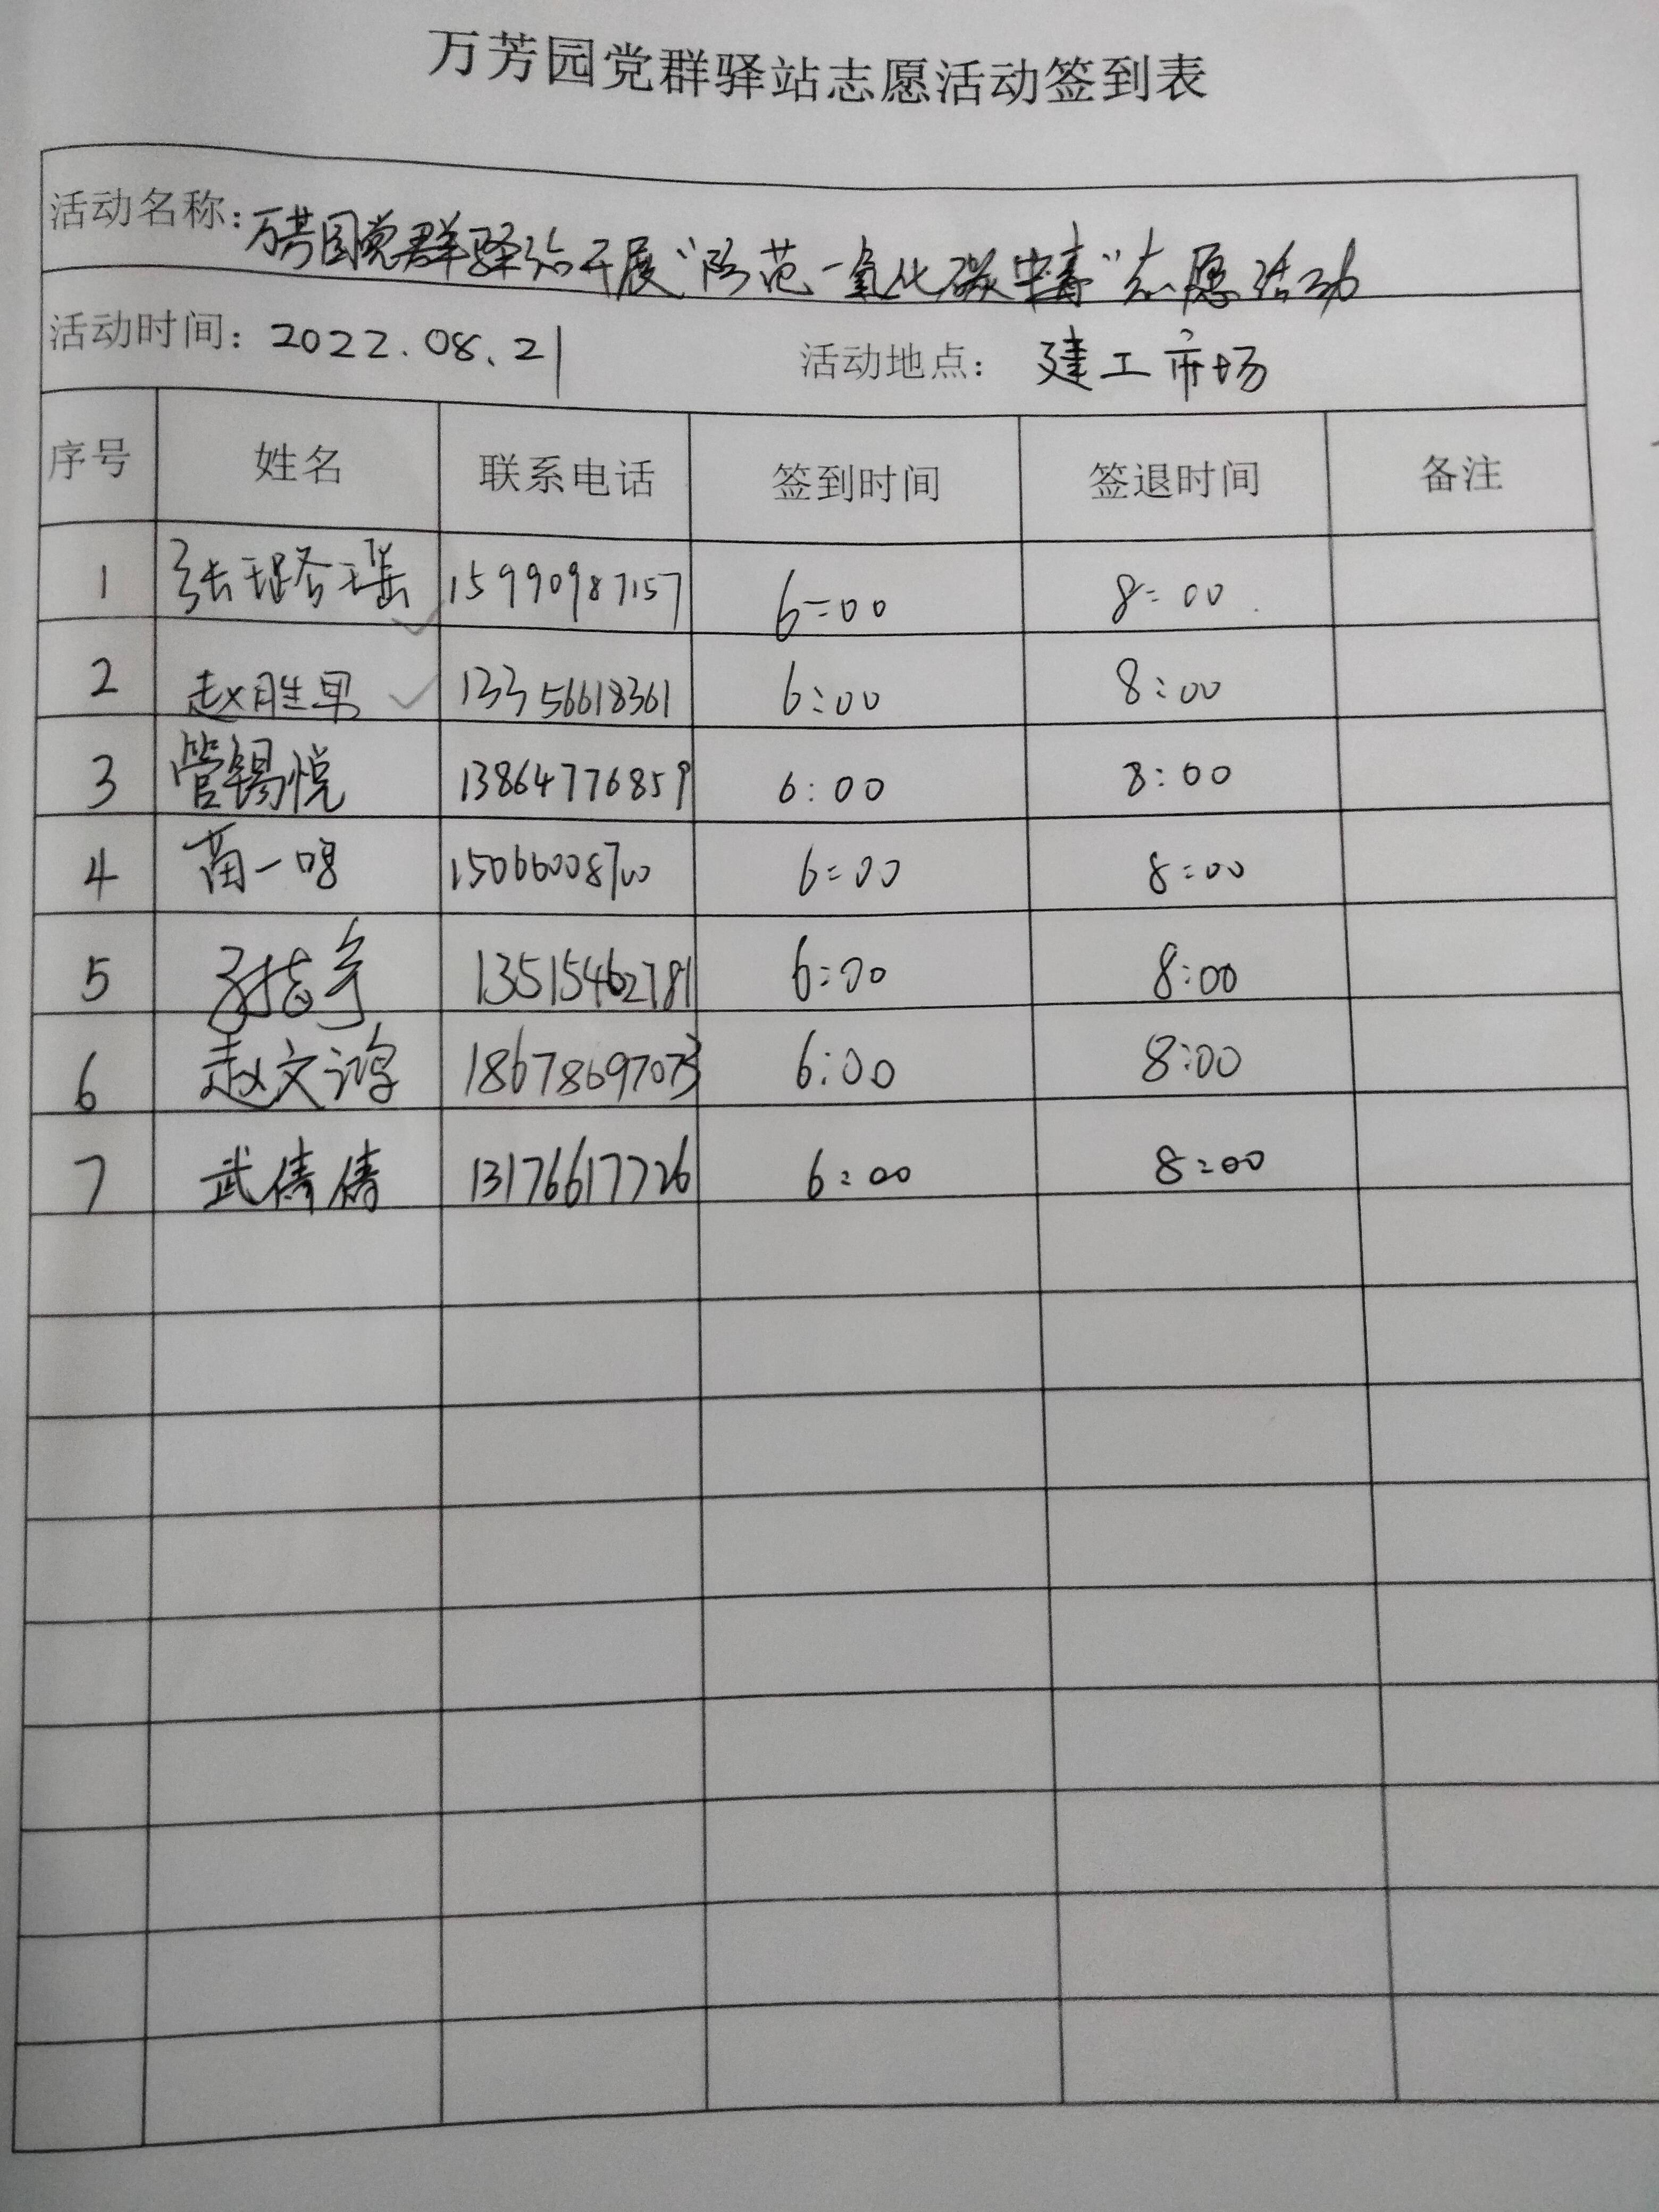 万芳园党群驿站志愿活动签到表
活动名称：万芳园党群驿站开展“防范一氧化碳中毒”志愿活动
活动时间：2022.08.21 活动地点：建工市场
序号 姓名 联系电话 签到时间 签退时间 备注
1 张珺瑶 15990987157 6:00 8:00
2 赵胜男 13356618361 6:00 8:00
3 管锡悦 13864776859 6:00 8:00
4 一鸣 15066008700 6:00 8:00
5 13515462781 6:00 8:00
6 赵文鸿 18678697073 6:00 8:00
7 武倩倩 13176617726 6:00 8:00